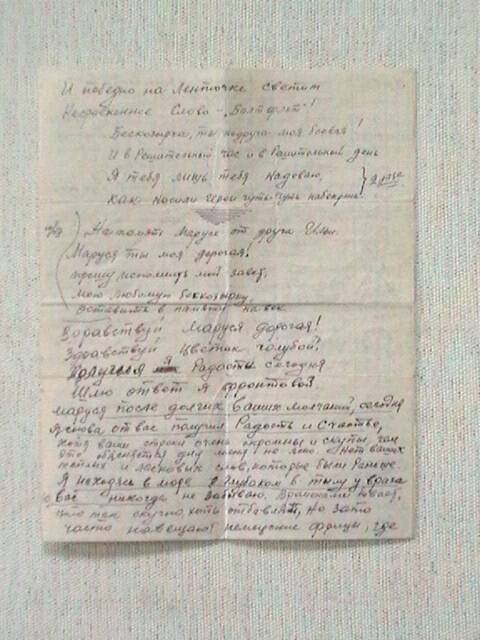 И победно на Ленточке светит
Несравненное Слово - "Балтфлот"!
Бескозырка, ты подруга моя боевая!
И в Решательный час и в Решительный день
Я тебя лишь тебя надеваю,
Как носили герои чуть чуть набекрень.
2 раза
На память Марусе от друга
Маруся ты моя дорогая!
прошу исполнить мой завет,
мою любимую бескозырку,
оставить в память на век.
Здравствуй Маруся дорогая!
Здравствуй Цветник голубой!
Радость сегодня
Шлю ответ я фронтовой.
Маруся после долгих Ваших молчаний, сегодня
Я снова от вас получил Радость и Счастье,
хотя ваши строки очень скромны и скупы, чем
это объясняется для меня не ясно. Нет ваших
теплых и ласковых слов, которые были Раньше.
Я нахожусь в море в Глубоком в тылу у врага
о Вас никогда не забываю. Временами бывает,
что так скучно, хоть отбавляй, но зато
часто навещают немецкие фрицы, где